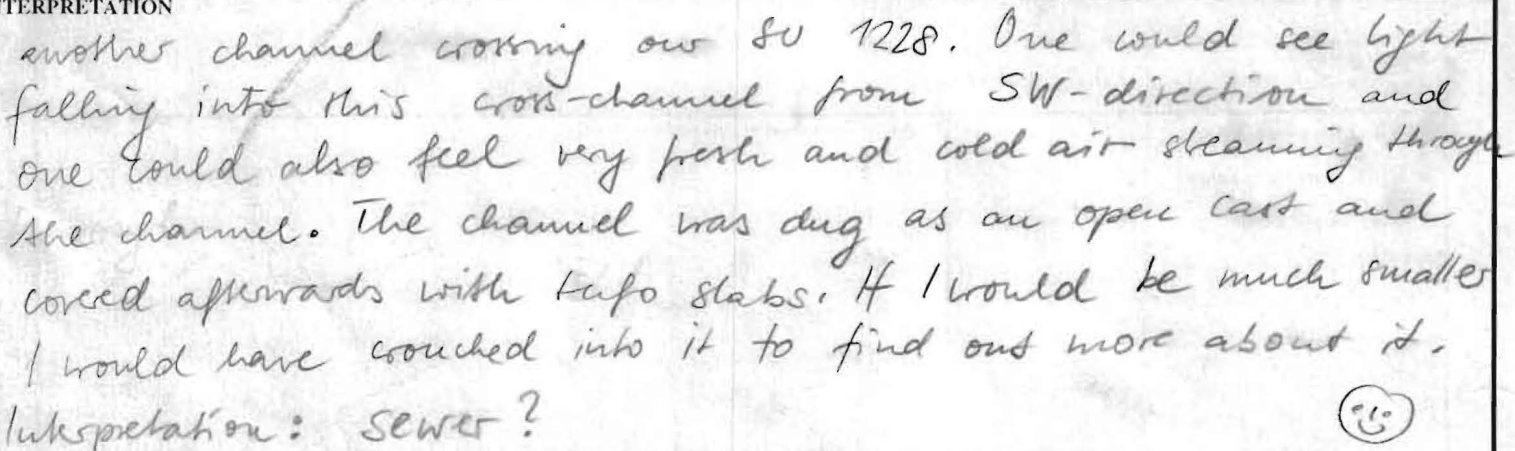 INTERPRETATION
another channel crossing our SU 1228. One could see light
falling into this cross-channel from SW-direction and
one could also feel very fresh and cold air steaming through
the channel. The channel was dug as an open cast and
covered afterwards with tufo slabs. If I would be much smaller
I would have crouched into it to find out more about it.
Interpretation: sewer?